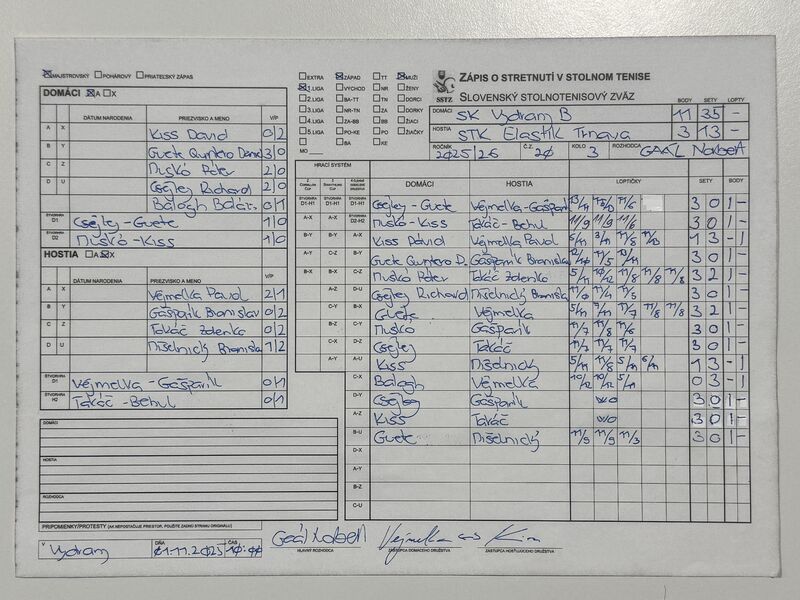 MAJSTROVSKÝ POHÁROVÝ PRIATEĽSKÝ ZÁPAS
DOMÁCI A X
DÁTUM NARODENIA PRIEZVISKO A MENO V/P
A X Kiss David 0/2
B Y Guete Quintero Denis 3/0
C Z Muskó Péter 2/0
D U Csejtey Richard 2/0
Balogh Baláz 0/1
ŠTVORHRA D1 Csejtey - Guete 1/0
ŠTVORHRA D2 Muskó - Kiss 1/0
HOSTIA A X
DÁTUM NARODENIA PRIEZVISKO A MENO V/P
A X Vejmelka Pavol 2/1
B Y Gašparík Branislav 0/2
C Z Takáč Zdenko 0/2
D U Mišelnický Branisla 1/2
ŠTVORHRA D1 Vejmelka - Gašparik 0/1
ŠTVORHRA H2 Takáč - Behul 0/1
DOMÁCI
HOSTIA
ROZHODCA
PRIPOMIENKY/PROTESTY (AK NEPOSTAČUJE PRIESTOR, POUŽITE ZADNÚ STRANU ORIGINÁLU)
V Vydrany DŇA 01.11.2025 ČAS
EXTRA ZÁPAD TT MUŽI
1.LIGA VÝCHOD NR ŽENY
2.LIGA BA-TT TN DORCI
3.LIGA NR-TN ZA DORKY
4.LIGA ZA-BB BB ŽIACI
5.LIGA PO-KE PO ŽIAČKY
BA KE
MO
SSTZ
ZÁPIS O STRETNUTÍ V STOLNOM TENISE
SLOVENSKÝ STOLNOTENISOVÝ ZVÄZ
BODY SETY LOPTY
DOMÁCI SK Vydrany B 11 35 -
HOSTIA STK Elastik Trnava 3 13 -
ROČNÍK 2025/26 Č.Z. 20 KOLO 3 ROZHODCA GAÁL Norbert
HRACÍ SYSTÉM
DOMÁCI HOSTIA LOPTIČKY SETY BODY
D1-H1 D1-H1 D1-H1 Csejtey - Guete Vejmelka-Gašparík 13/11 15/0 11/6 3 0 1 -
A-X A-X D2-H2 Muskó - Kiss Takáč - Behul 11/9 11/9 11/6 3 0 1 -
B-Y B-Y A-X Kiss David Vejmelka Pavol 6/11 3/11 11/8 11/13 1 3 - 1
A-Y C-Z B-Y Guete Quintero D. Gašparik Branislav 11/5 13/11 3 0 1 -
B-X B-X C-Z Muskó Péter Takáč Zdenko 5/11 10/12 11/8 11/8 11/8 3 2 1 -
A-Z D-U Csejtey Richard Mišelnický Branisla 11/4 11/5 3 0 1 -
C-Y B-X Guete Vejmelka 5/11 11/7 11/8 11/8 3 2 1 -
B-Z C-Y Muskó Gašparik 11/7 11/8 11/7 3 0 1 -
C-X D-Z Csejtey Takáč 11/7 11/7 3 0 1 -
A-Y A-U Kiss Mišelnický 5/11 11/8 5/11 6/11 1 3 - 1
C-X Balogh Vejmelka 10/12 10/12 5/11 0 3 - 1
D-Y Csejtey Gašparik w/o 3 0 1 -
A-Z Kiss Takáč w/o 3 0 1 -
B-U Guete Mišelnický 11/9 11/9 11/3 3 0 1 -
D-X
A-Y
B-Z
C-U
Gaál Norbert
HLAVNÝ ROZHODCA
ZÁSTUPCA DOMÁCEHO DRUŽSTVA
ZÁSTUPCA HOSŤUJÚCEHO DRUŽSTVA